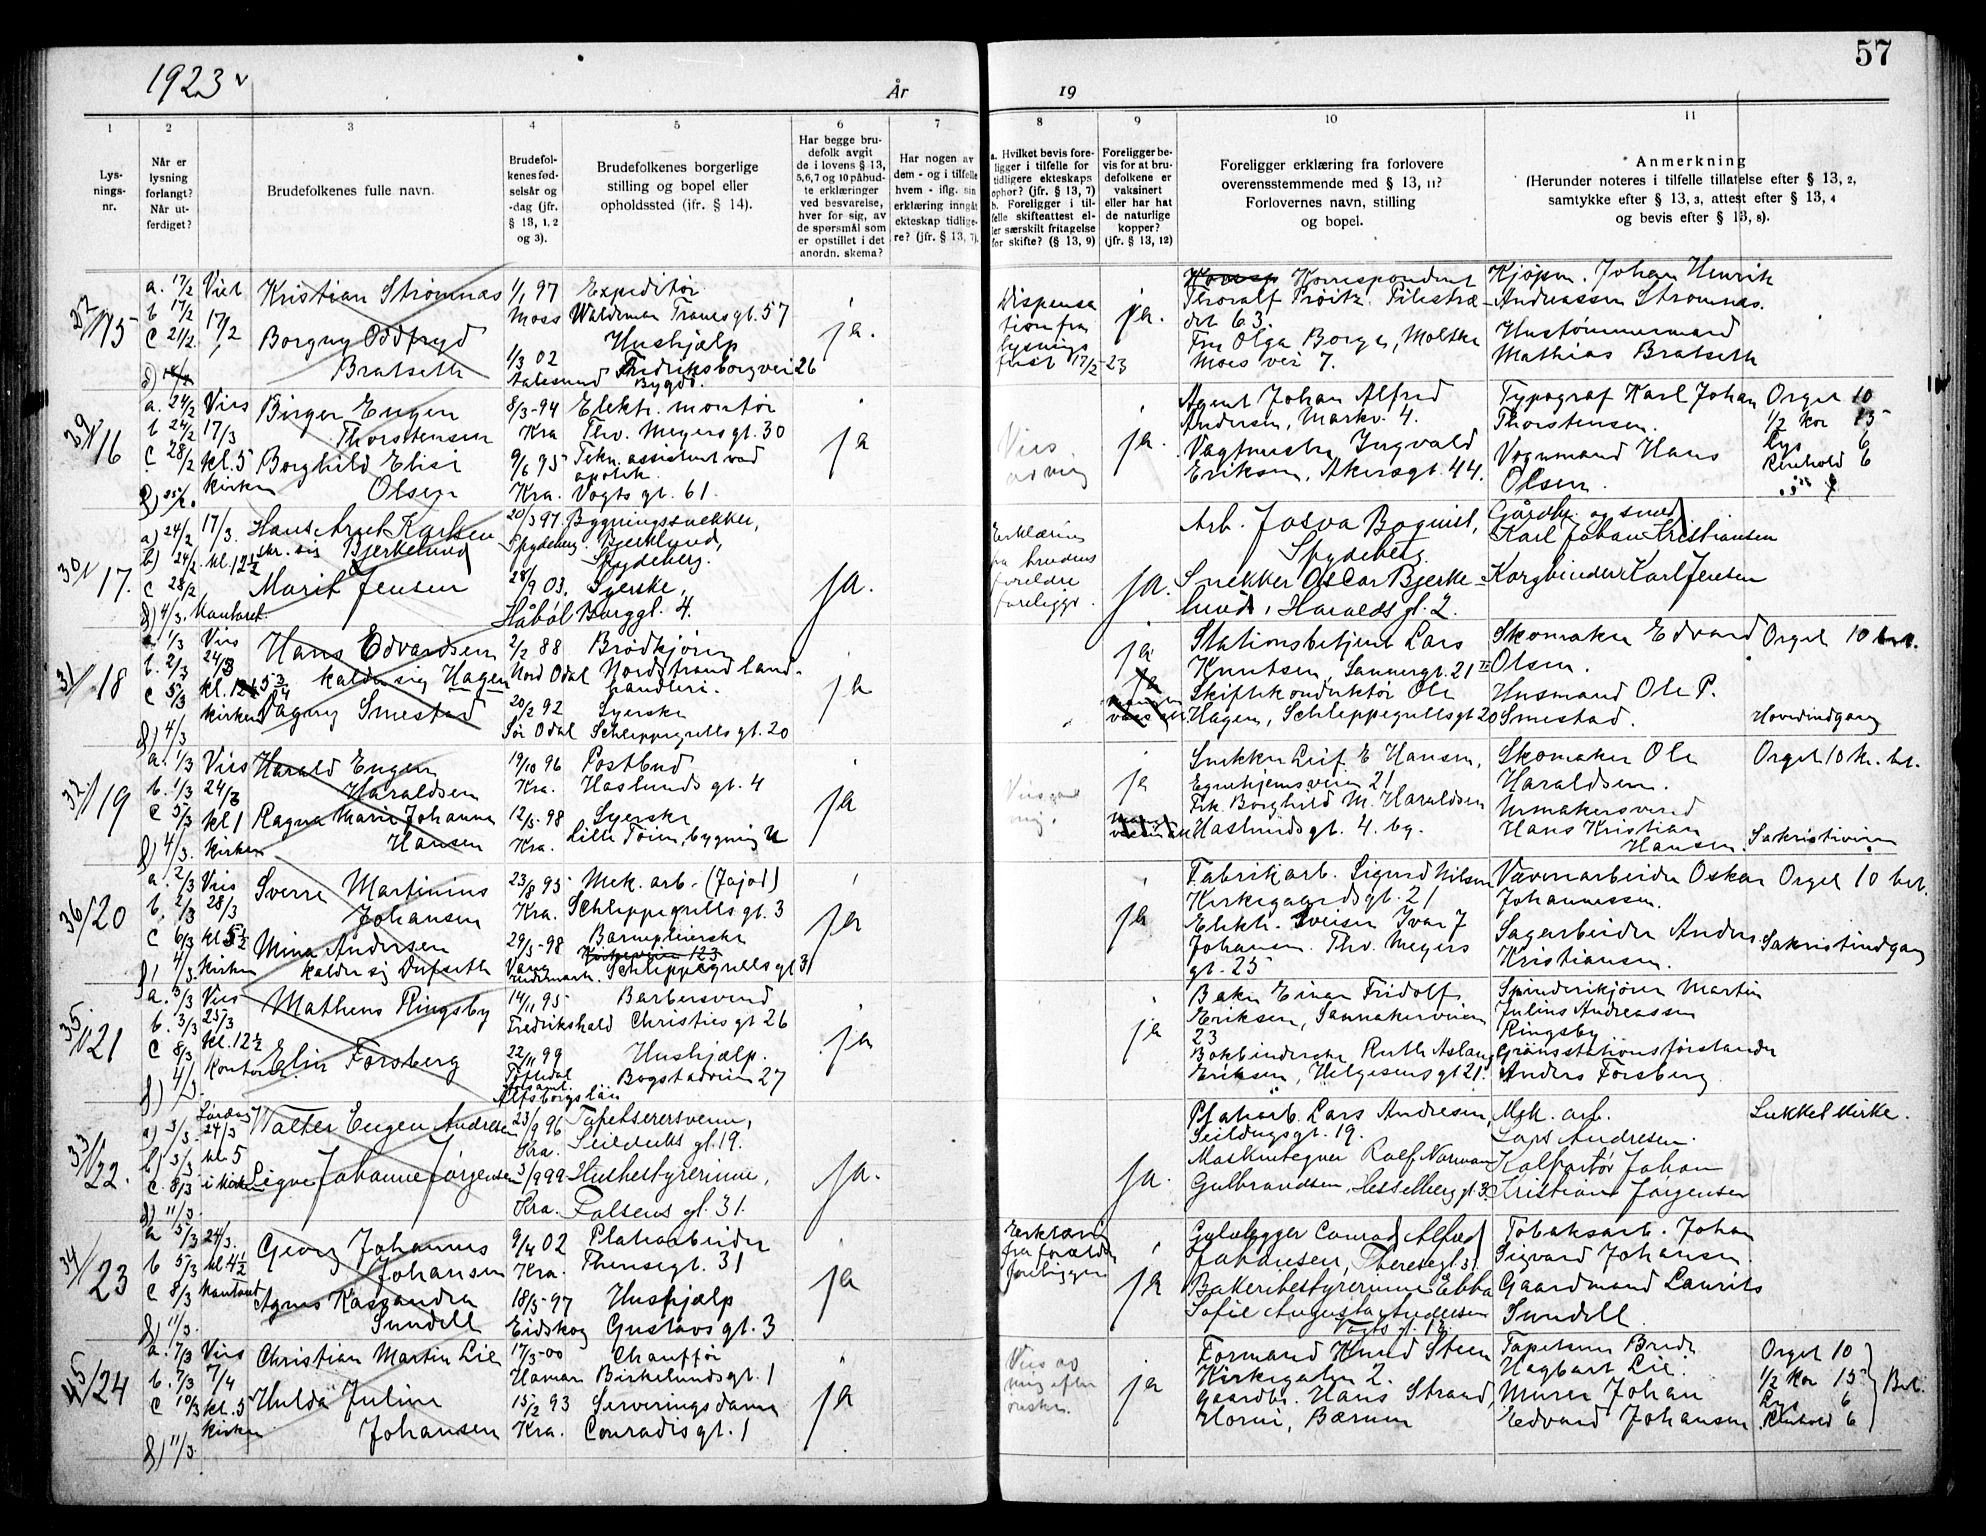 57
1923
År
19
1
2
3
4
5
6
7
8
9
10
11
Lys-
nings-
nr.
Når er
lysning
forlangt?
Når ut-
ferdiget?
Brudefolkenes fulle navn.
Brudefol-
kenes fød-
selsår og
-dag (jfr.
§ 13, 1, 2
og 3).
Brudefolkenes borgerlige
stilling og bopel eller
opholdssted (jfr. § 14).
Har begge bru-
defolk avgit
de i lovens § 13,
5,6,7 og 10 påbud-
te erklæringer
ved besvarelse,
hver for sig, av
de spørsmål som
er opstillet i det
anordn. skema?
Har nogen av
dem - og i tilfelle
hvem - iflg. sin
erklæring inngåt
ekteskap tidlige-
re? (jfr. § 13, 7).
a. Hvilket bevis fore-
ligger i tilfelle for
tidligere ekteskaps
ophør? (jfr. § 13, 7)
b. Foreligger i til-
felle skifteattest el-
ler særskilt fritagelse
for skifte? (§ 13, 9)
Foreligger be-
vis for at bru-
defolkene er
vaksinert
eller har hat
de naturlige
kopper?
(jfr. § 13, 12)
Foreligger erklæring fra forlovere
overensstemmende med § 13, 11?
Forlovernes navn, stilling
og bopel.
Anmerkning
(Herunder noteres i tilfelle tillatelse efter § 13, 2,
samtykke efter § 13, 3, attest efter § 13, 4
og bevis efter § 13, 8).
15
a. 17/2
b 17/2
c 21/2
Viet
17/2
Kristian Strømnæs
Borgny Oddfryd
Bratseth
1/1 97
Moss
1/3 02
Aalesund
Expeditør
Waldemar Tranes gt. 57
Hushjælp
Fredriksborgvei 26
Bygdø.
ja.
Dispensa
tion fra
lysning
17/2-23
ja.
Korrespondent
Thoralf Trøitz. Pilestræ-
det 63.
Fru Olga Borge, Moltke
Moes vei 7.
Kjøpm. Johan Henrik
Andreassen Strømnæs.
Hustømmermand
Mathias Bratseth
29/16
a. 24/2
b 24/2
c 28/2
Vies
17/3
kl. 5
kirken
Birger Eugen
Thorstensen
Borghild Elise
Olsen
8/3-94
Kra
9/6 95
Kra.
Elektr. montør
Thv. Meyersgt. 30
Tekn. assistent ved
apotek.
Vogts gt. 61.
ja
ja.
Agent Johan Alfred
Andersen, Markv. 4.
Vagtmester Ingvald
Eriksen, Akersgt. 44.
Typograf Karl Johan
Thorstensen.
Vognmand Hans
Olsen.
Orgel 10
1/2 kor 15
Lys 6
Renhold 6
30/17.
a) 24/2
b) 24/2
c 28/2
d) 4/3.
17/3.
kl. 12½
Kontoret.
Hans Arnt Karlsen
skr. sig Bjerkelund
Marit Jensen
20/3 97.
Spydeberg.
28/9 03.
Håbøl
Bygningssnekker,
Bjerklund,
Spydeberg.
Syerske,
Borggt. 4.
ja.
Erklæring
fra brudens
foreldre
foreligger.
ja.
Arb. Josva Boquist,
Spydeberg.
Snekker Oscar Bjerke-
lund, Haralds gt. 2.
Gårdbr. og smed
Karl Johan Kristiansen
Korgbinder Karl Jensen
31/18
a. 1/3
b. 2/3
c 5/3
d) 4/3
Vies
24/3
kirken
Hans Edvardsen
kalder sig Hagen
Dagny Smestad
2/2 88
Nord Odal
20/2 92
Sør Odal
Brødkjører
Nordstrand land-
handleri.
Syerske
Schleppegrells gt. 20
ja
ja
Stationsbetjent Lars
Knutsen, Sannergt. 21 II
Skiftekonduktør Ole
Hagen, Schleppegrells gt 20
Skomaker Edvard
Olsen.
Husmand Ole P.
Smestad.
Orgel 10 bet.
Hovedindgang
32/19
a. 1/3
b. 1/3
c 5/3
d) 4/3.
Vies
24/3
kl 1
kirken
Harald Eugen
Haraldsen
Ragna Marie Johanne
Hansen
19/10 96
Kra.
12/5-98
Kra.
Postbud
Haslunds gt. 4
Syerske
Lille Tøien, bygning U
ja
ja
Snekker Leif E Hansen,
Egnehjemsveien 21
Frk. Borghild M. Haraldsen
Haslunds gt. 4. bg.
Skomaker Ole
Haraldsen.
Urmakersvend
Hans Kristian
Hansen.
Orgel 10 kr. bet.
Sakristiveien
36/20
a. 2/3
b. 2/3
c 6/3
Vies
28/3
kl 5½
kirken
Sverre Martinius
Johansen
Mina Andersen
kalder sig Dufseth
23/8 95
Kra.
29/5-98
Vang
Hedemark.
Mek. arb. (Jajod)
Schleppegrells gt. 3
Barnepleierske
Schleppegrells gt 31
ja
ja
Fabrikarb. Sigurd Nilsen
Kirkegaardsgt. 21
Elektr. sveiser Ivar J
Johansen. Thv. Meyers
gt. 25
Væverarbeider Oskar
Johannessen.
Sagarbeider Anders
Kristiansen.
Orgel 10 bet.
Sakristindgang
35/21
a. 3/3
b. 3/3
c 8/3
Vies
25/3
kl. 12½
Kontoret.
Mathens Ringsby
Elin Forsberg
14/11 95
Fredrikshald
22/11 99
Töftedal
Älfsborgslän
Barbersvend
Christies gt 26
Hushjælp.
Bogstadveien 27
ja
ja
Baker Einar Fridolf
Eriksen, Sannakerveien
23
Bokbinderske Ruth Aslaug
Eriksen, Helgesens gt 21.
Spinderikjører Martin
Julius Andreassen
Ringsby
Gränsstationsförståndare
Anders Forsberg
33/22.
a) 3/3.
b) 3/3
c. 8/3
d) 11/3.
Lørdag
24/3
kl. 5
i kirken
Valter Eugen Andresen
Signe Johanne Jørgensen
23/9 96
Kra.
3/9 99
Kra.
Tapetserersvenn,
Seilduks gt. 19.
Husbestyrerinne,
Falsens gt. 31.
ja.
ja.
Platearb. Lars Andresen,
Seildugsgt. 19.
Maskintegner Rolf Norman
Gulbrandsen, Hesselberg gt. 3.
Mek. arb.
Lars Andresen.
Kolportør Johan
Kristian Jørgensen
Lukket kirke.
34/23
a 5/3
b 5/3
c 8/3
d) 11/3.
24/3.
kl 4½
kontoret
Georg Johannes
Johansen
Agnes Kassandra
Sundell
9/4 02
Kra.
18/5-97
Eidskog
Platearbeider
Theresegt. 31
Hushjælp
Gustavs gt. 3
ja
Erklæring
fra forældre
foreligger
ja
Gulvlægger Conrad Alfred
Johansen, Theresegt 31
Bakeribestyrerinne Ebba
Sofie Augusta Andersen
Vogts gt. 12.
Tobaksarb. Johan
Sigvard Johansen.
Gaardmand Laurits
Sundell.
45/24
a. 7/3
b. 7/3
c 10/3
d) 11/3.
Vies
7/4
kl. 5
kirken
Christian Martin Lie
Hulda Juline
Johansen
17/5-00
Hamar
15/2 93
Kra.
Chauffør
Birkelunds gt. 1
Serveringsdame
Conradis gt. 1
ja
ja
Formand Knud Steen
Kirkegaten 2.
Gaardbr. Hans Strand,
Horni, Bærum
Tapetserer Brede
Hagbart Lie.
Murer Johan
Edvard Johansen
Orgel 10
1/2 kor 15
Lys 6
Renhold 6
Bet.